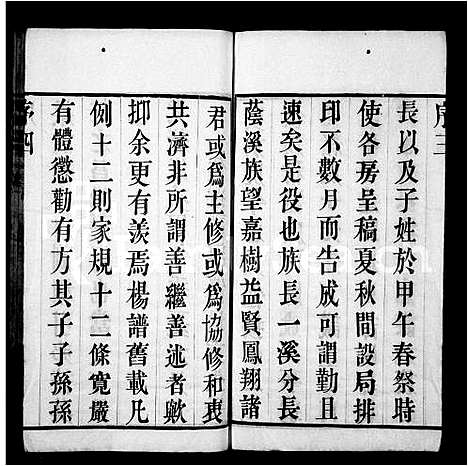 序三
長以及子姓於甲午春祭時
使各房呈稿夏秋間設局排
印不數月而告成可謂勤且
速矣是役也族長一溪分長
蔭溪族望嘉樹益賢鳳翔諸
君或爲主修或爲協修和衷
共濟非所謂善繼善述者歟
抑余更有羨焉楊譜舊載凡
例十二則家規十二條寬嚴
有體懲勸有方其子子孫孫
序四